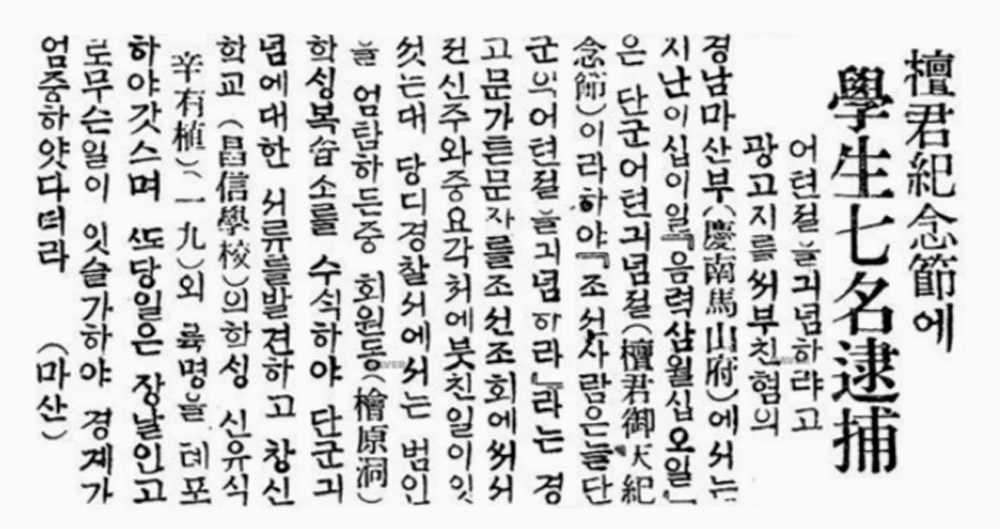 檀君紀念節에
學生七名逮捕
어텬졀을긔념하랴고
광고지를써부친혐의
경남마산부(慶南馬山府)에서는
지난이십이일『음력삼월십오일』
은 단군어텬긔념졀(檀君御天紀
念節)이라하야『조선사람은들단
군의어텬졀을긔념하라』라는 경
고문가튼문자를조선조희에써서
뎐신주와중요각처에붓친일이잇
섯는대 당디경찰서에서는 범인
을 엄탐하든중 회원동(檜原洞)
학싱복습소를 수식하야 단군긔
념에대한 서류를발견하고 창신
학교 (昌信學校)의학싱 신유식
(辛有植)(一九)외 륙명을 톄포
하야갓스며 ᄯᅩ당일은 장날인고
로무슨일이 잇슬가하야 경계가
엄중하얏다더라 (마산)